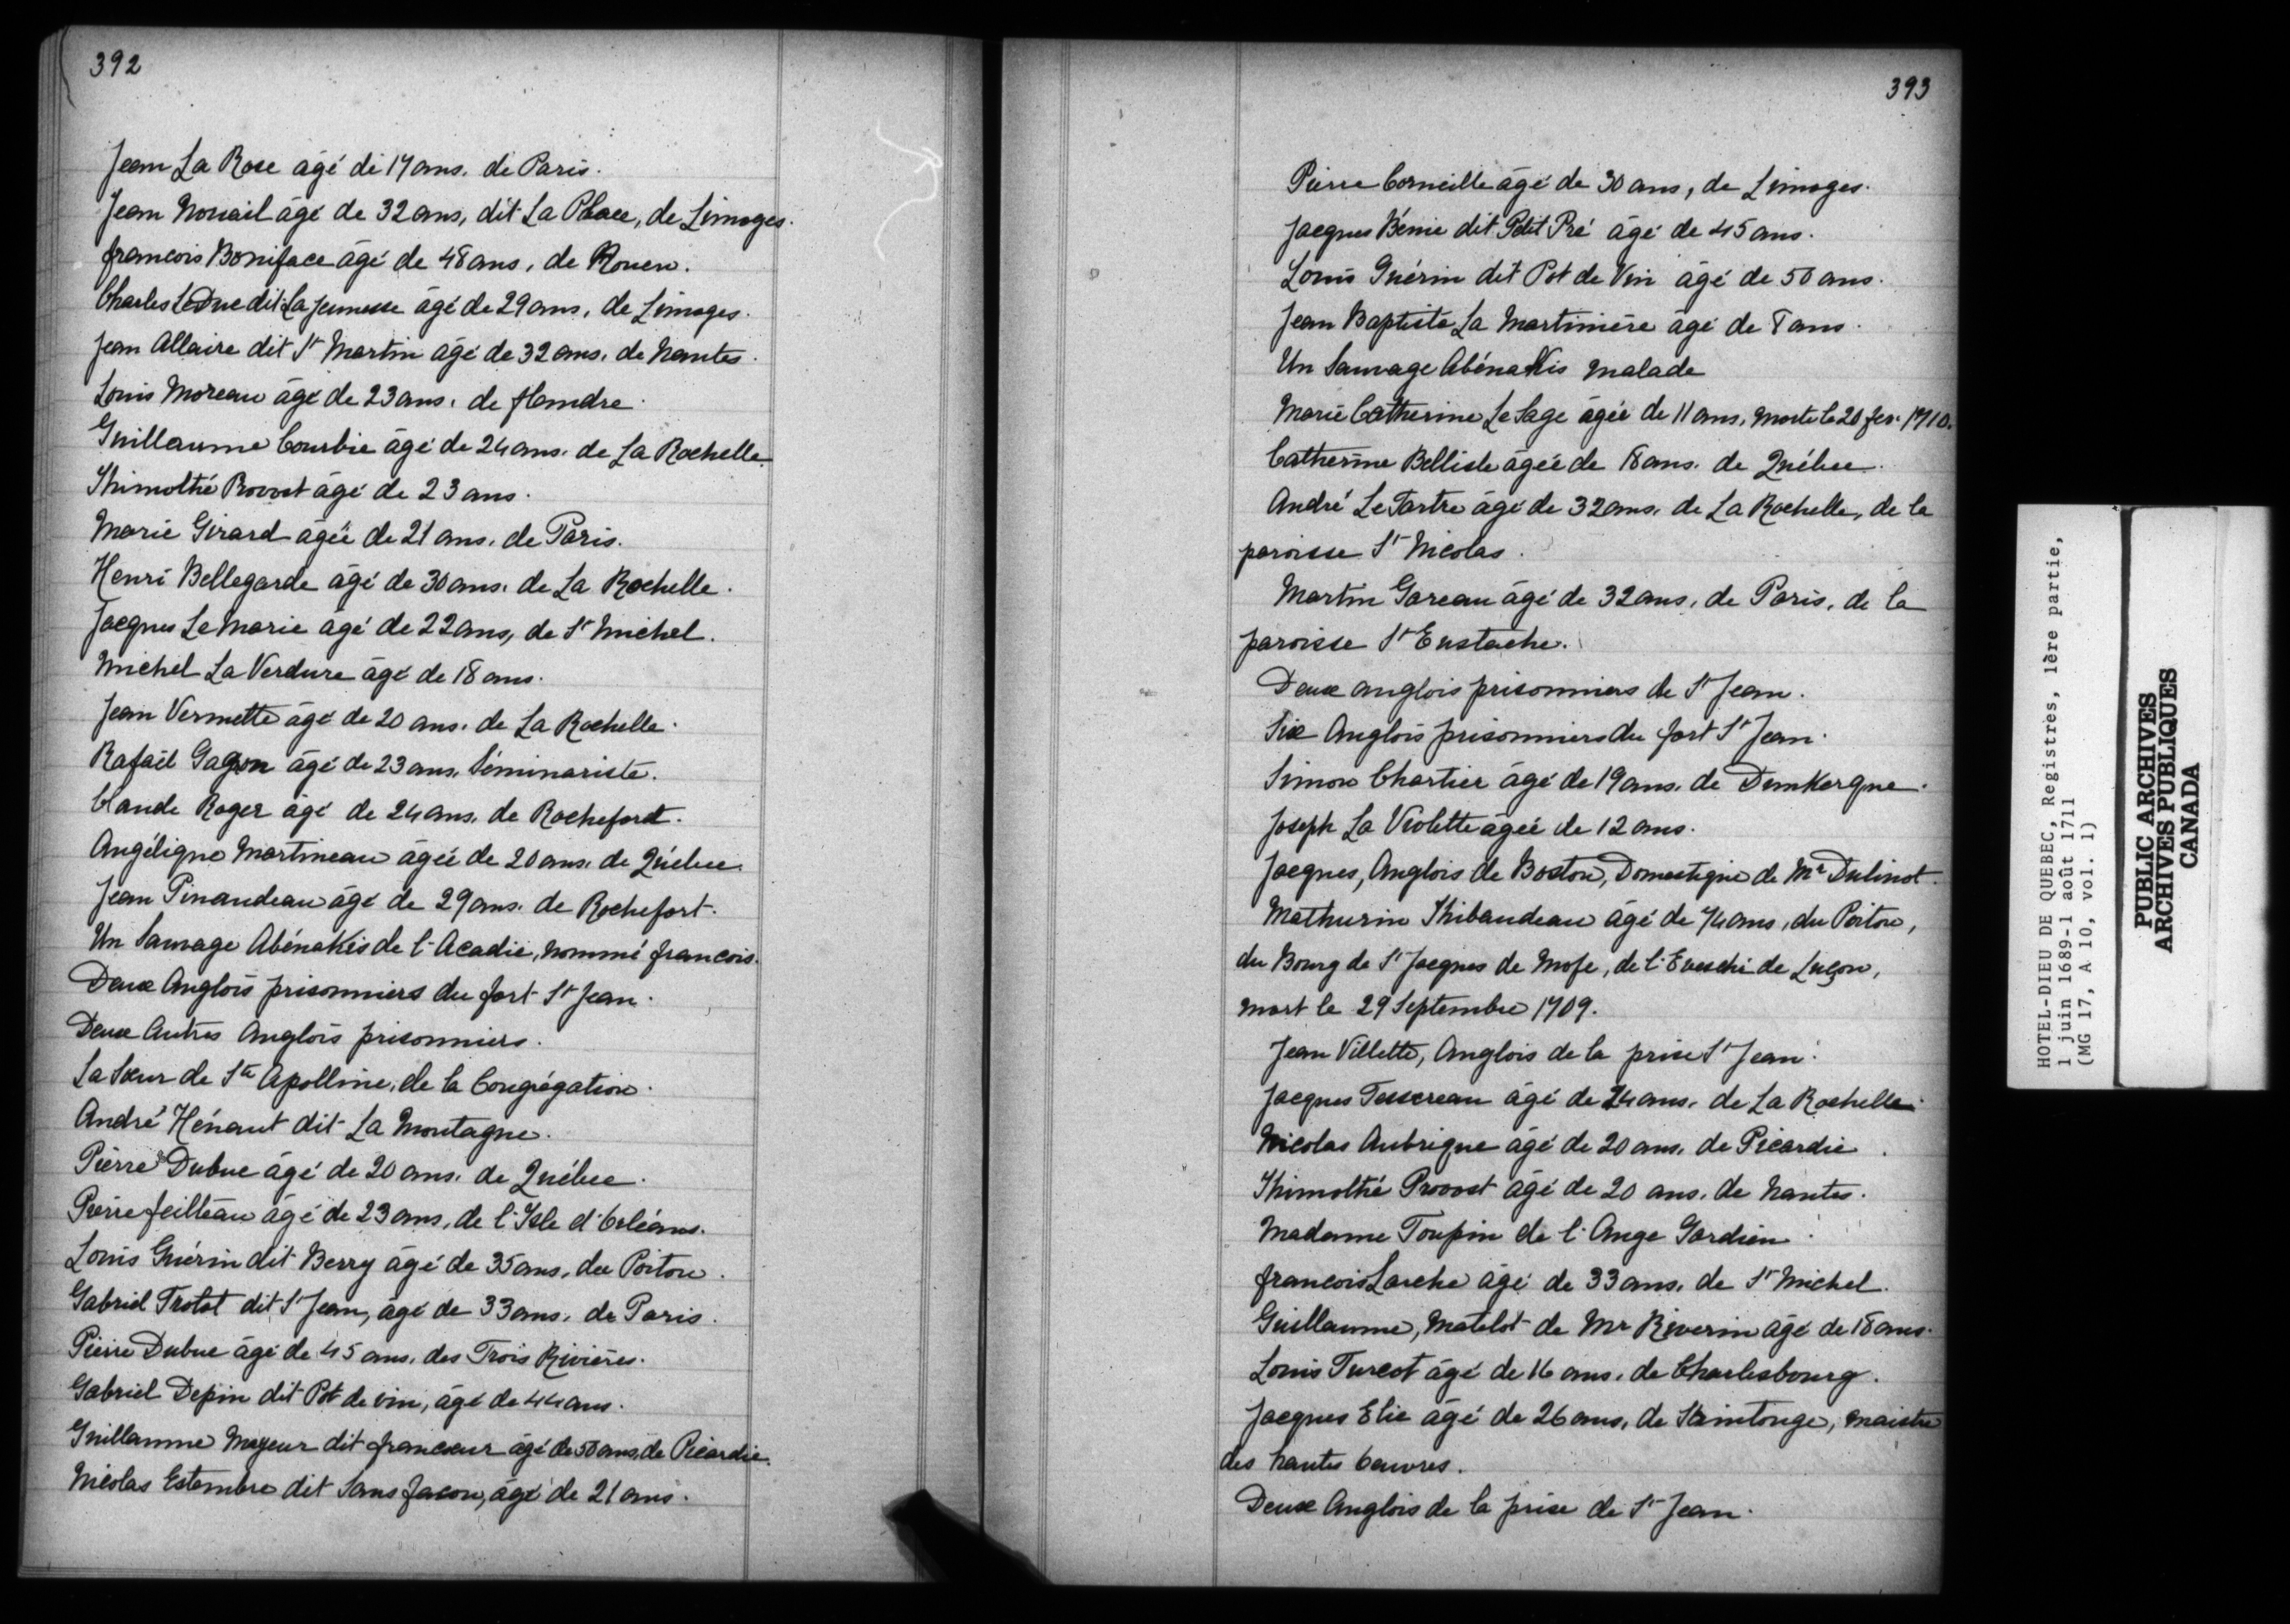 392
Jean La Rose âgé de 17 ans. de Paris.
Jean Nouail âgé de 32 ans, dit La Place, de Limoges.
francois Boniface âgé de 48 ans, de Rouen.
Charles LeDuc dit La jeunesse âgé de 29 ans, de Limoges.
Jean Allaire dit St Martin âgé de 32 ans. de Nantes.
Louis Moreau âgé de 23 ans. de flandre.
Guillaume Courbie âgé de 24 ans. de La Rochelle.
Thimothé Provost âgé de 23 ans.
Marie Girard âgée de 21 ans. de Paris.
Henri Bellegarde âgé de 30 ans. de La Rochelle.
Jacques Le Marie âgé de 22 ans, de St Michel.
Michel La Verdure âgé de 18 ans.
Jean Vermette âgé de 20 ans. de La Rochelle.
Rafaël Gagon âgé de 23 ans. Séminariste.
Claude Roger âgé de 24 ans. de Rochefort.
Angélique Martineau âgée de 20 ans. de Québec.
Jean Pinaudeau âgé de 29 ans. de Rochefort.
Un Sauvage Abénakis de l'Acadie, nommé francois.
Deux Anglois prisonniers du fort St Jean.
Deux Autres Anglois prisonniers.
La Soeur de Ste Apolline, de la Congrégation.
André Hénaut dit La Montagne.
Pierre Dubuc âgé de 20 ans. de Québec.
Pierre feilteau âgé de 23 ans, de l'Isle d'Orléans.
Louis Guérin dit Berry âgé de 35 ans, du Poitou.
Gabriel Trotot dit St Jean, âgé de 33 ans. de Paris.
Pierre Dubuc âgé de 45 ans. des Trois Rivières.
Gabriel Depin dit Pot de vin, âgé de 44 ans.
Guillaume Mayeur dit francoeur âgé de 50 ans, de Picardie.
Nicolas Estambre dit Sans facon, âgé de 21 ans.
393
Pierre Corneille âgé de 30 ans, de Limoges.
Jacques Bénie dit Petit Pré âgé de 45 ans.
Louis Guérin dit Pot de Vin âgé de 50 ans.
Jean Baptiste La Martinière âgé de 8 ans.
Un Sauvage Abénakis malade
Marie Catherine Le Sage âgée de 11 ans, morte le 20 fev. 1710.
Catherine Bellisle âgée de 18 ans. de Québec.
André Le Tartre âgé de 32 ans. de La Rochelle, de la
paroisse St Nicolas.
Martin Gareau âgé de 32 ans, de Paris, de la
paroisse St Eustache.
Deux anglois prisonniers de St Jean.
Six Anglois prisonniers du fort St Jean.
Simon Chartier âgé de 19 ans. de Dunkerque.
Joseph La Violette âgée de 12 ans.
Jacques, Anglois de Boston, Domestique de Mr Dulinot.
Mathurin Thibaudeau âgé de 74 ans, du Poitou,
du Bourg de St Jacques de Mofe, de l'Evesché de Luçon,
mort le 29 Septembre 1709.
Jean Villette, Anglois de la prise St Jean.
Jacques Tessereau âgé de 24 ans. de La Rochelle.
Nicolas Aubrique âgé de 20 ans. de Picardie.
Thimothé Provost âgé de 20 ans. de Nantes.
Madame Toupin de l'Ange Gardien.
francois Larche âgé de 33 ans. de St Michel.
Guillaume, Matelot de Mr Riverin âgé de 18 ans.
Louis Turcot âgé de 16 ans. de Charlesbourg.
Jacques Elie âgé de 26 ans, de Saintonge, maistre
des hautes Oeuvres.
Deux Anglois de la prise de St Jean.
HOTEL-DIEU DE QUEBEC, Registres, 1ère partie,
1 juin 1689-1 août 1711
(MG 17, A 10, vol. 1)
PUBLIC ARCHIVES
ARCHIVES PUBLIQUES
CANADA